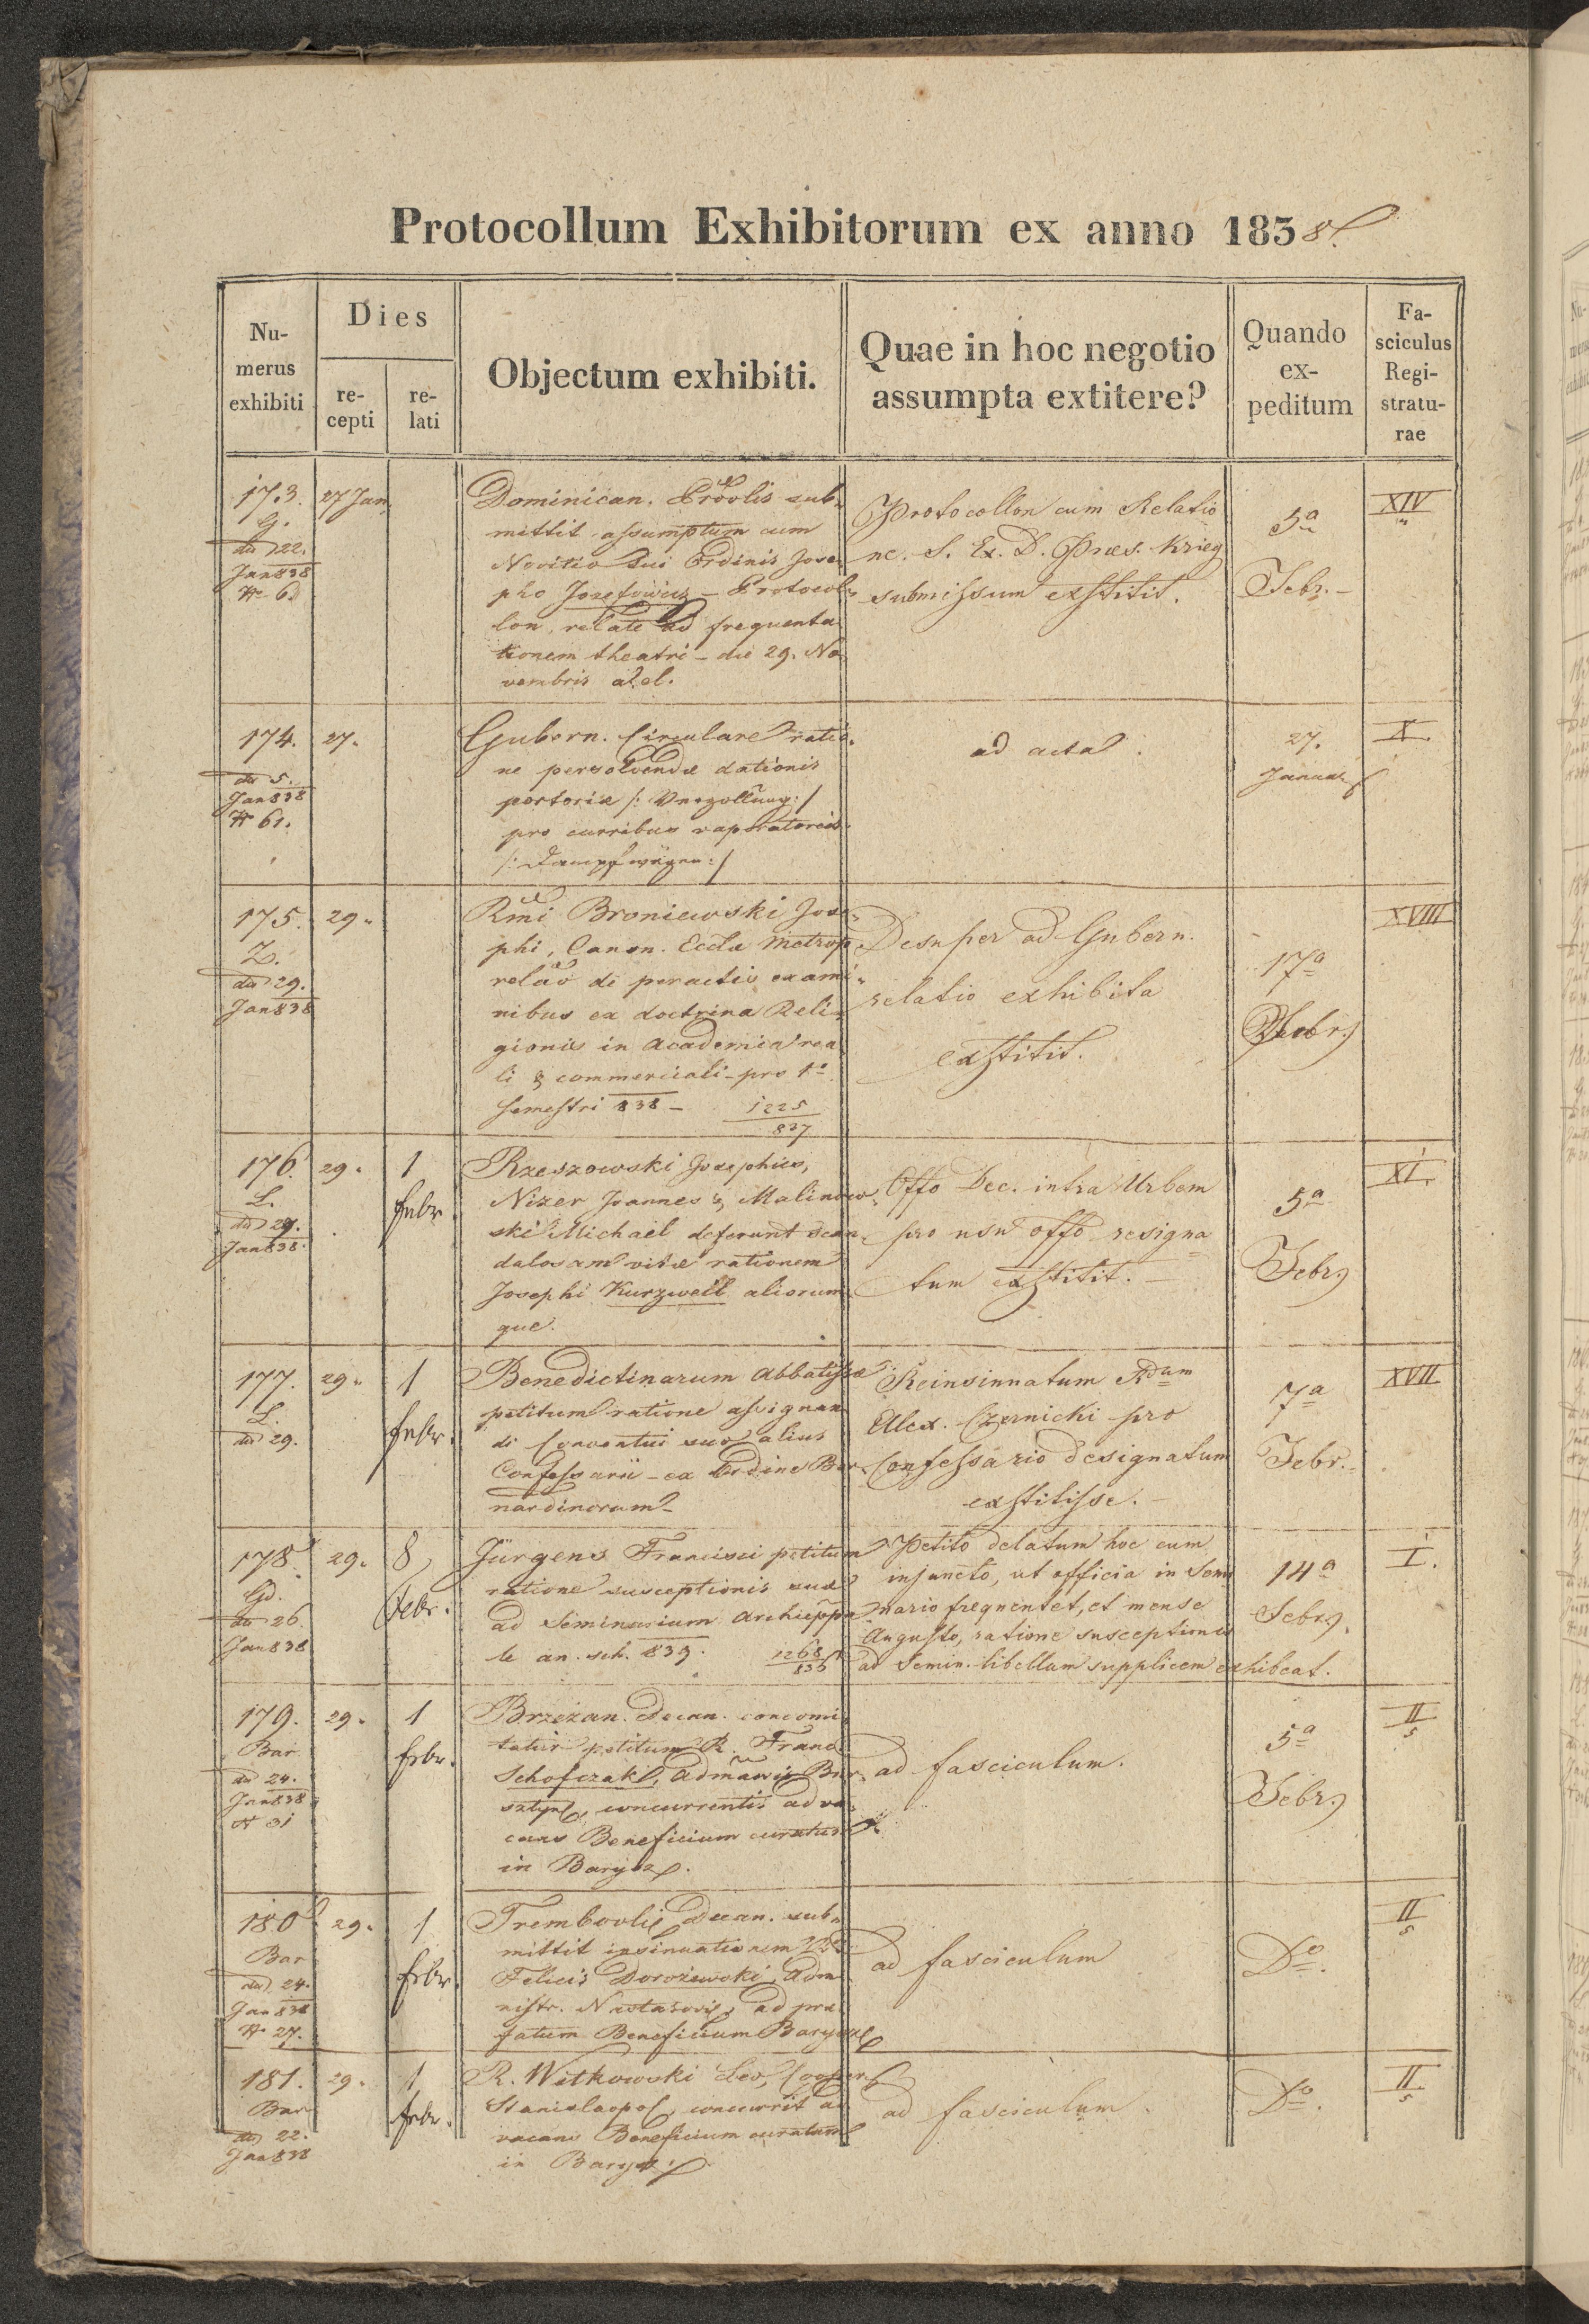 Protocollum Exhibitorum ex anno 1838.
Nu-
merus
exhibiti
Dies
re-
cepti
re-
lati
Objectum exhibiti.
Quae in hoc negotio
assumpta extitere?
Quando
ex-
peditum
Fa-
sciculus
Regi-
stratu-
rae
173.
G.
dd 22.
Jan 838
№ 6
27 Jan
Dominican. Provlis sub-
mittit assumptum cum
Novitio sui Ordinis Jose-
pho Josefowicz - Protocol-
lon, relate ad frequenta
tionem theatri - die 29. No
vembris a. el.
Protocollon cum Relatio
ne. S. Ex. D. Præs. Krieg
submissum exstitit.
5a
Febr. -
XIV
174.
dd 5.
Jan 838
№ 61.
27.
Gubern. Circulare ratio-
ne persolvendæ dationis
portoriæ /: Verzollung :/
pro curribus vaporatoriis
/: Dampfwägen :/
ad acta.
27.
Januar
X.
175.
Z.
dd 29.
Jan 838
29.
Rmi Broniewski Jose-
phi, Canon. Eccl[ae] Metrop
relāo de peractis exami-
nibus ex doctrina Reli-
gionis in Academia rea
li & commerciali - pro 1o
Semestri 838 - 1225
837
Desuper ad Gubern.
relatio exhibita
exstitit.
17a
Febr.
XVIII
176.
L.
dd 29.
Jan 838.
29.
1
Febr.
Rzeszowski Josephus,
Nizer Joannes & Malinow-
ski Michael deferunt scan-
dalosam vitæ rationem
Josephi Kurzweil aliorum
que.
Offo Dec. intra Urbem
pro usu offo resigna
tum exstitit. -
5a
Febr.
XI.
177.
L.
dd 29.
29.
1
Febr.
Benedictinarum Abbatissæ
petitum ratione assignan
di Conventui suo alius
Confessarii - ex Ordine Ber-
nardinorum -
Reinsinuatum Rdum
Alex. Czernicki pro
Confessario designatum
exstitisse. -
7a
Febr.
XVII
178.
Gd.
dd 26.
Jan 838
29.
8
Febr.
Jürgens Francisci petitum
ratione susceptionis suæ
ad Seminarium Archieppa
le an. sch. 839. 1268
836
Petito delatum hoc cum
injuncto, ut officia in Semi
nario frequentet, et mense
Augusto, ratione susceptionis
ad Semin. libellum supplicem exhibeat.
14a
Febr.
I.
179.
Bar
dd 24.
Jan 838
№ 31
29.
1
Febr.
Brzezan. Decan. concomi
tatur petitum R. Franc.
Schofczak, Admāris Bur-
sztyn, concurrentis ad va-
cans Beneficium curatum
in Barysz.
ad fasciculum.
5a
Febr.
II
5
180
Bar
dd 24.
Jan 838
№ 27.
29.
1
Febr.
Trembovli Decan. sub-
mittit insinuationem
Felicis Dorożewski, Admi
nistr. Nastasovi, ad præ
fatum Beneficium Barysz
ad fasciculum
Do.
II
5
181.
Bar
dd 22.
Jan 838
29.
1
Febr.
R. Witkowski Leo, Cooper.
Stanislaopol, concurrit ad
vacans Beneficium curatum
in Barysz.
ad fasciculum.
Do.
II
5